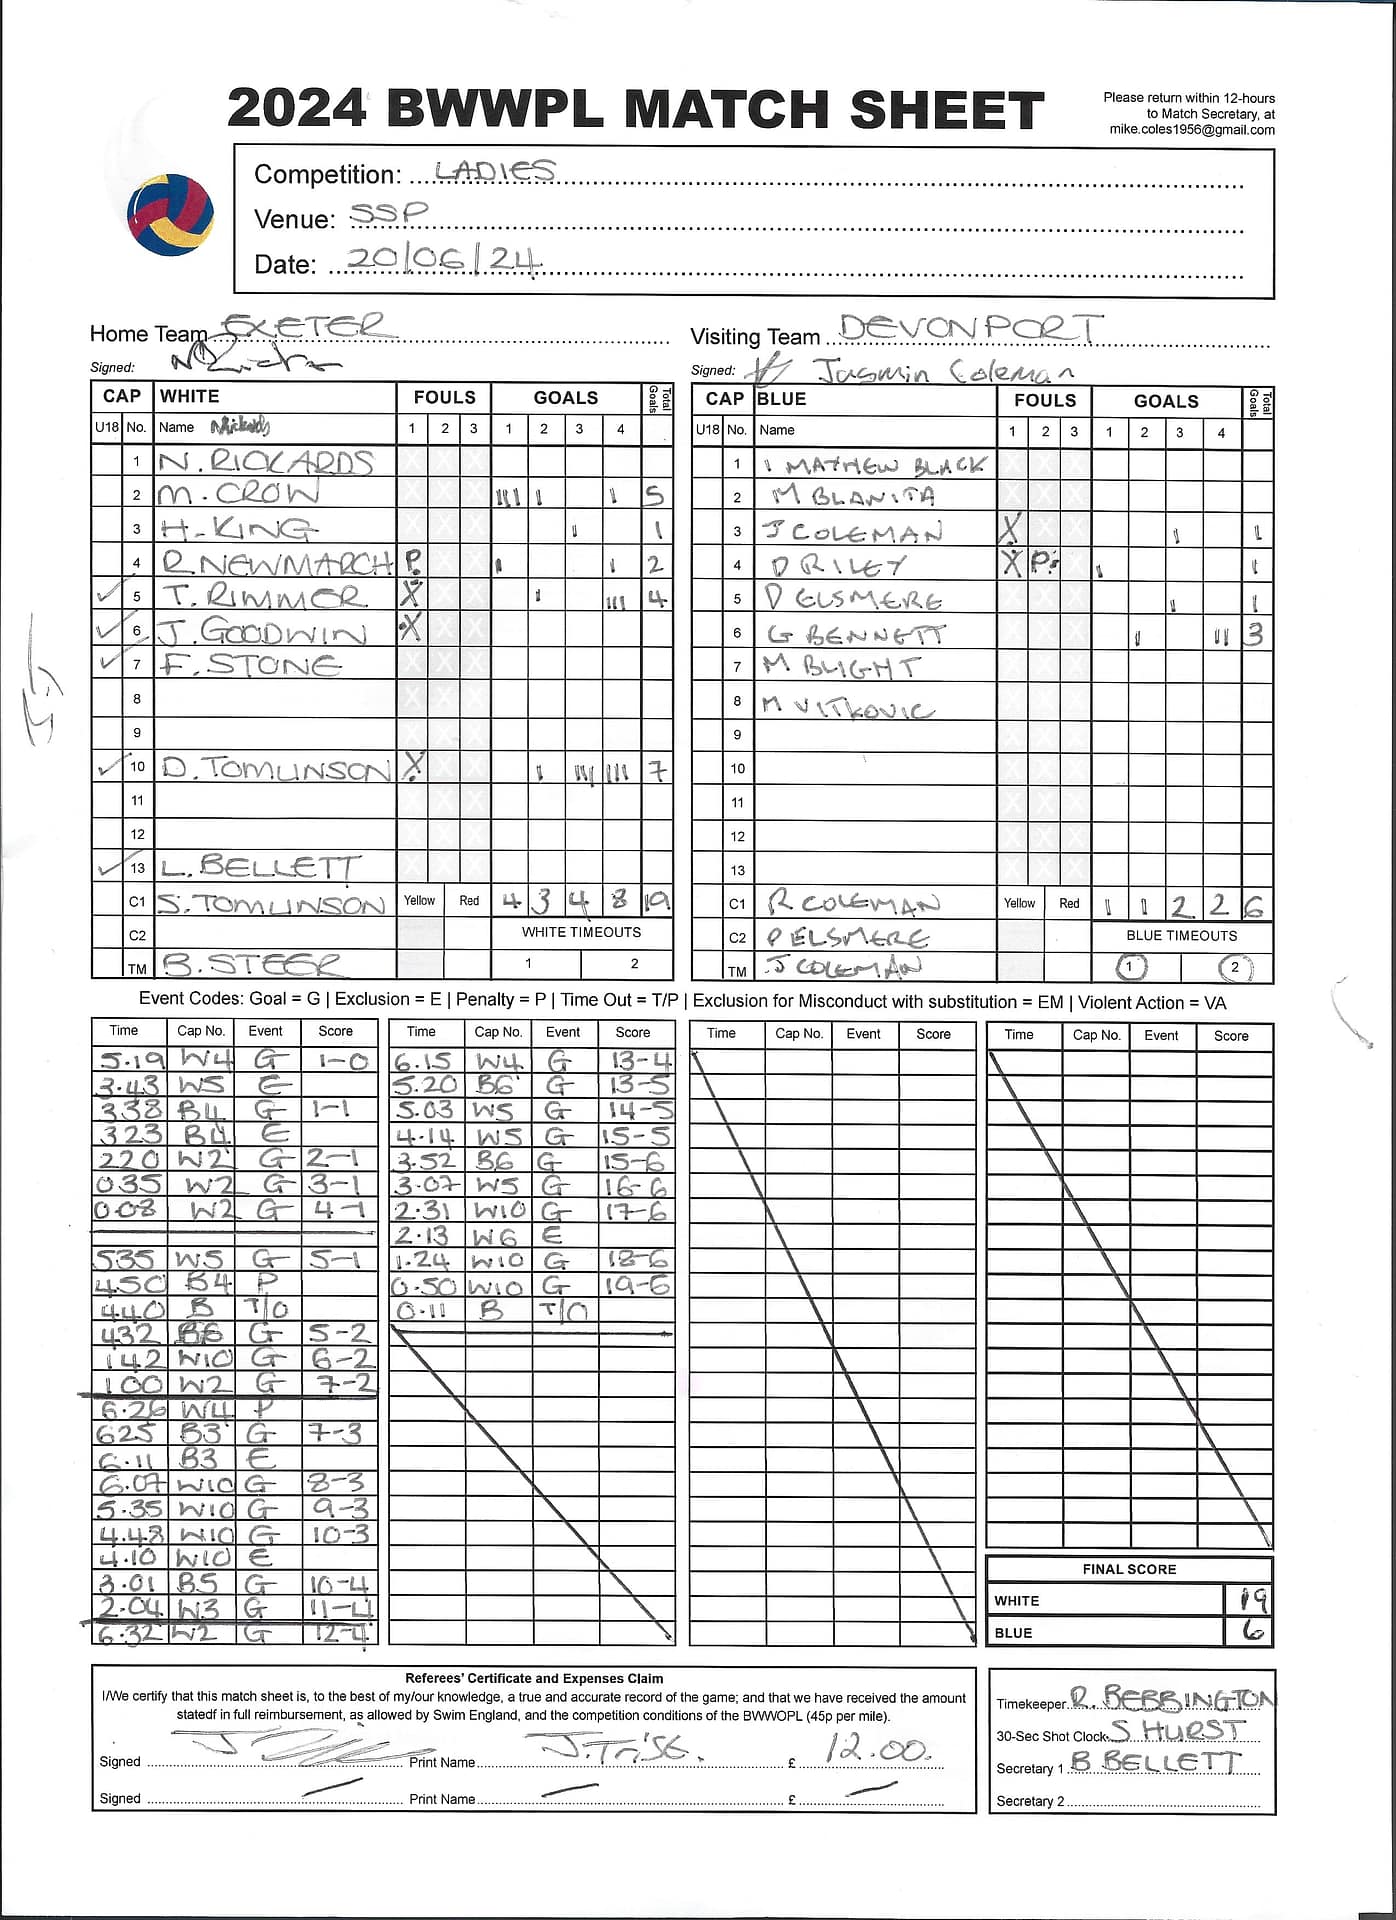 2024 BWWPL MATCH SHEET
Please return within 12-hours
to Match Secretary, at
mike.coles1956@gmail.com
Competition: LADIES
Venue: SSP
Date: 20/06/24
Home Team EXETER
Visiting Team DEVONPORT
Signed:
Signed: Jasmin Coleman
CAP WHITE FOULS GOALS Total Goals
U18 No. Name 1 2 3 1 2 3 4
1 N. RICKARDS
2 M. CROW III I I 5
3 H. KING I 1
4 R. NEWMARCH P. I I 2
✓ 5 T. RIMMER X I III 4
✓ 6 J. GOODWIN X
✓ 7 F. STONE
8
9
✓ 10 D. TOMLINSON X I III III 7
11
12
✓ 13 L. BELLETT
C1 S. TOMLINSON Yellow Red 4 3 4 8 19
C2 WHITE TIMEOUTS
TM B. STEER 1 2
CAP BLUE FOULS GOALS Total Goals
U18 No. Name 1 2 3 1 2 3 4
1 MATHEW BLACK
2 M BLANITA
3 J COLEMAN X I 1
4 D RILEY X P. I 1
5 D ELSMERE I 1
6 G BENNETT I II 3
7 M BLIGHT
8 M VITKOVIC
9
10
11
12
13
C1 R COLEMAN Yellow Red 1 1 2 2 6
C2 P ELSMERE BLUE TIMEOUTS
TM J COLEMAN 1 2
Event Codes: Goal = G | Exclusion = E | Penalty = P | Time Out = T/P | Exclusion for Misconduct with substitution = EM | Violent Action = VA
Time Cap No. Event Score
5.19 W4 G 1-0
3.43 W5 E
338 B4 G 1-1
323 B4 E
220 W2 G 2-1
035 W2 G 3-1
008 W2 G 4-1
535 W5 G 5-1
450 B4 P
440 B T/O
432 B6 G 5-2
142 W10 G 6-2
100 W2 G 7-2
6.26 W4 P
625 B3 G 7-3
6.11 B3 E
6.07 W10 G 8-3
5.35 W10 G 9-3
4.48 W10 G 10-3
4.10 W10 E
3.01 B5 G 10-4
2.04 W3 G 11-4
6.32 W2 G 12-4
Time Cap No. Event Score
6.15 W4 G 13-4
5.20 B6 G 13-5
5.03 W5 G 14-5
4.14 W5 G 15-5
3.52 B6 G 15-6
3.07 W5 G 16-6
2.31 W10 G 17-6
2.13 W6 E
1.24 W10 G 18-6
0.50 W10 G 19-6
0.11 B T/O
Time Cap No. Event Score
Time Cap No. Event Score
FINAL SCORE
WHITE 19
BLUE 6
Referees' Certificate and Expenses Claim
I/We certify that this match sheet is, to the best of my/our knowledge, a true and accurate record of the game; and that we have received the amount
statedf in full reimbursement, as allowed by Swim England, and the competition conditions of the BWWOPL (45p per mile).
Signed Print Name £ 12.00.
Signed Print Name £
Timekeeper R. BEBBINGTON
30-Sec Shot Clock S HURST
Secretary 1 B BELLETT
Secretary 2